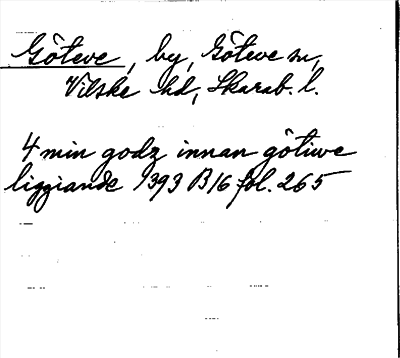 Göteve, by, Göteve sn,
Vilske hd, Skarab. l.
4 min godz innan götiwe
liggiande 1393 B16 fol. 265